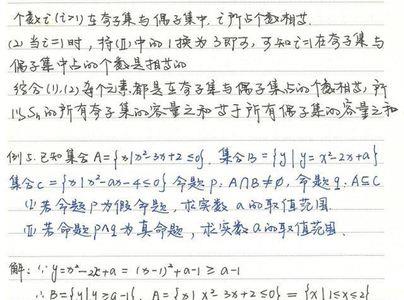 个数 i (i>1) 在奇子集与偶子集中, i 所占个数相等.
(2) 当 i=1 时, 将(Ⅱ)中的 1 换为 3 即可, 可知 i=1 在奇子集与
偶子集中占的个数是相等的
综合(1),(2) 每个元素都是在奇子集与偶子集占的个数相等, 所
以 Sₙ 的所有奇子集的容量之和等于所有偶子集的容量之和
例5. 已知集合 A={x|x²-3x+2≤0}, 集合 B={y|y=x²-2x+a}
集合 C={x|x²-ax-4≤0} 命题 p: A∩B≠∅, 命题 q: A⊆C
(Ⅰ) 若命题 P 为假命题, 求实数 a 的取值范围.
(Ⅱ) 若命题 p∧q 为真命题, 求实数 a 的取值范围.
解: ∵ y=x²-2x+a = (x-1)²+a-1 ≥ a-1
∴ B={y|y≥a-1}, A={x|x²-3x+2≤0} = {x|1≤x≤2}